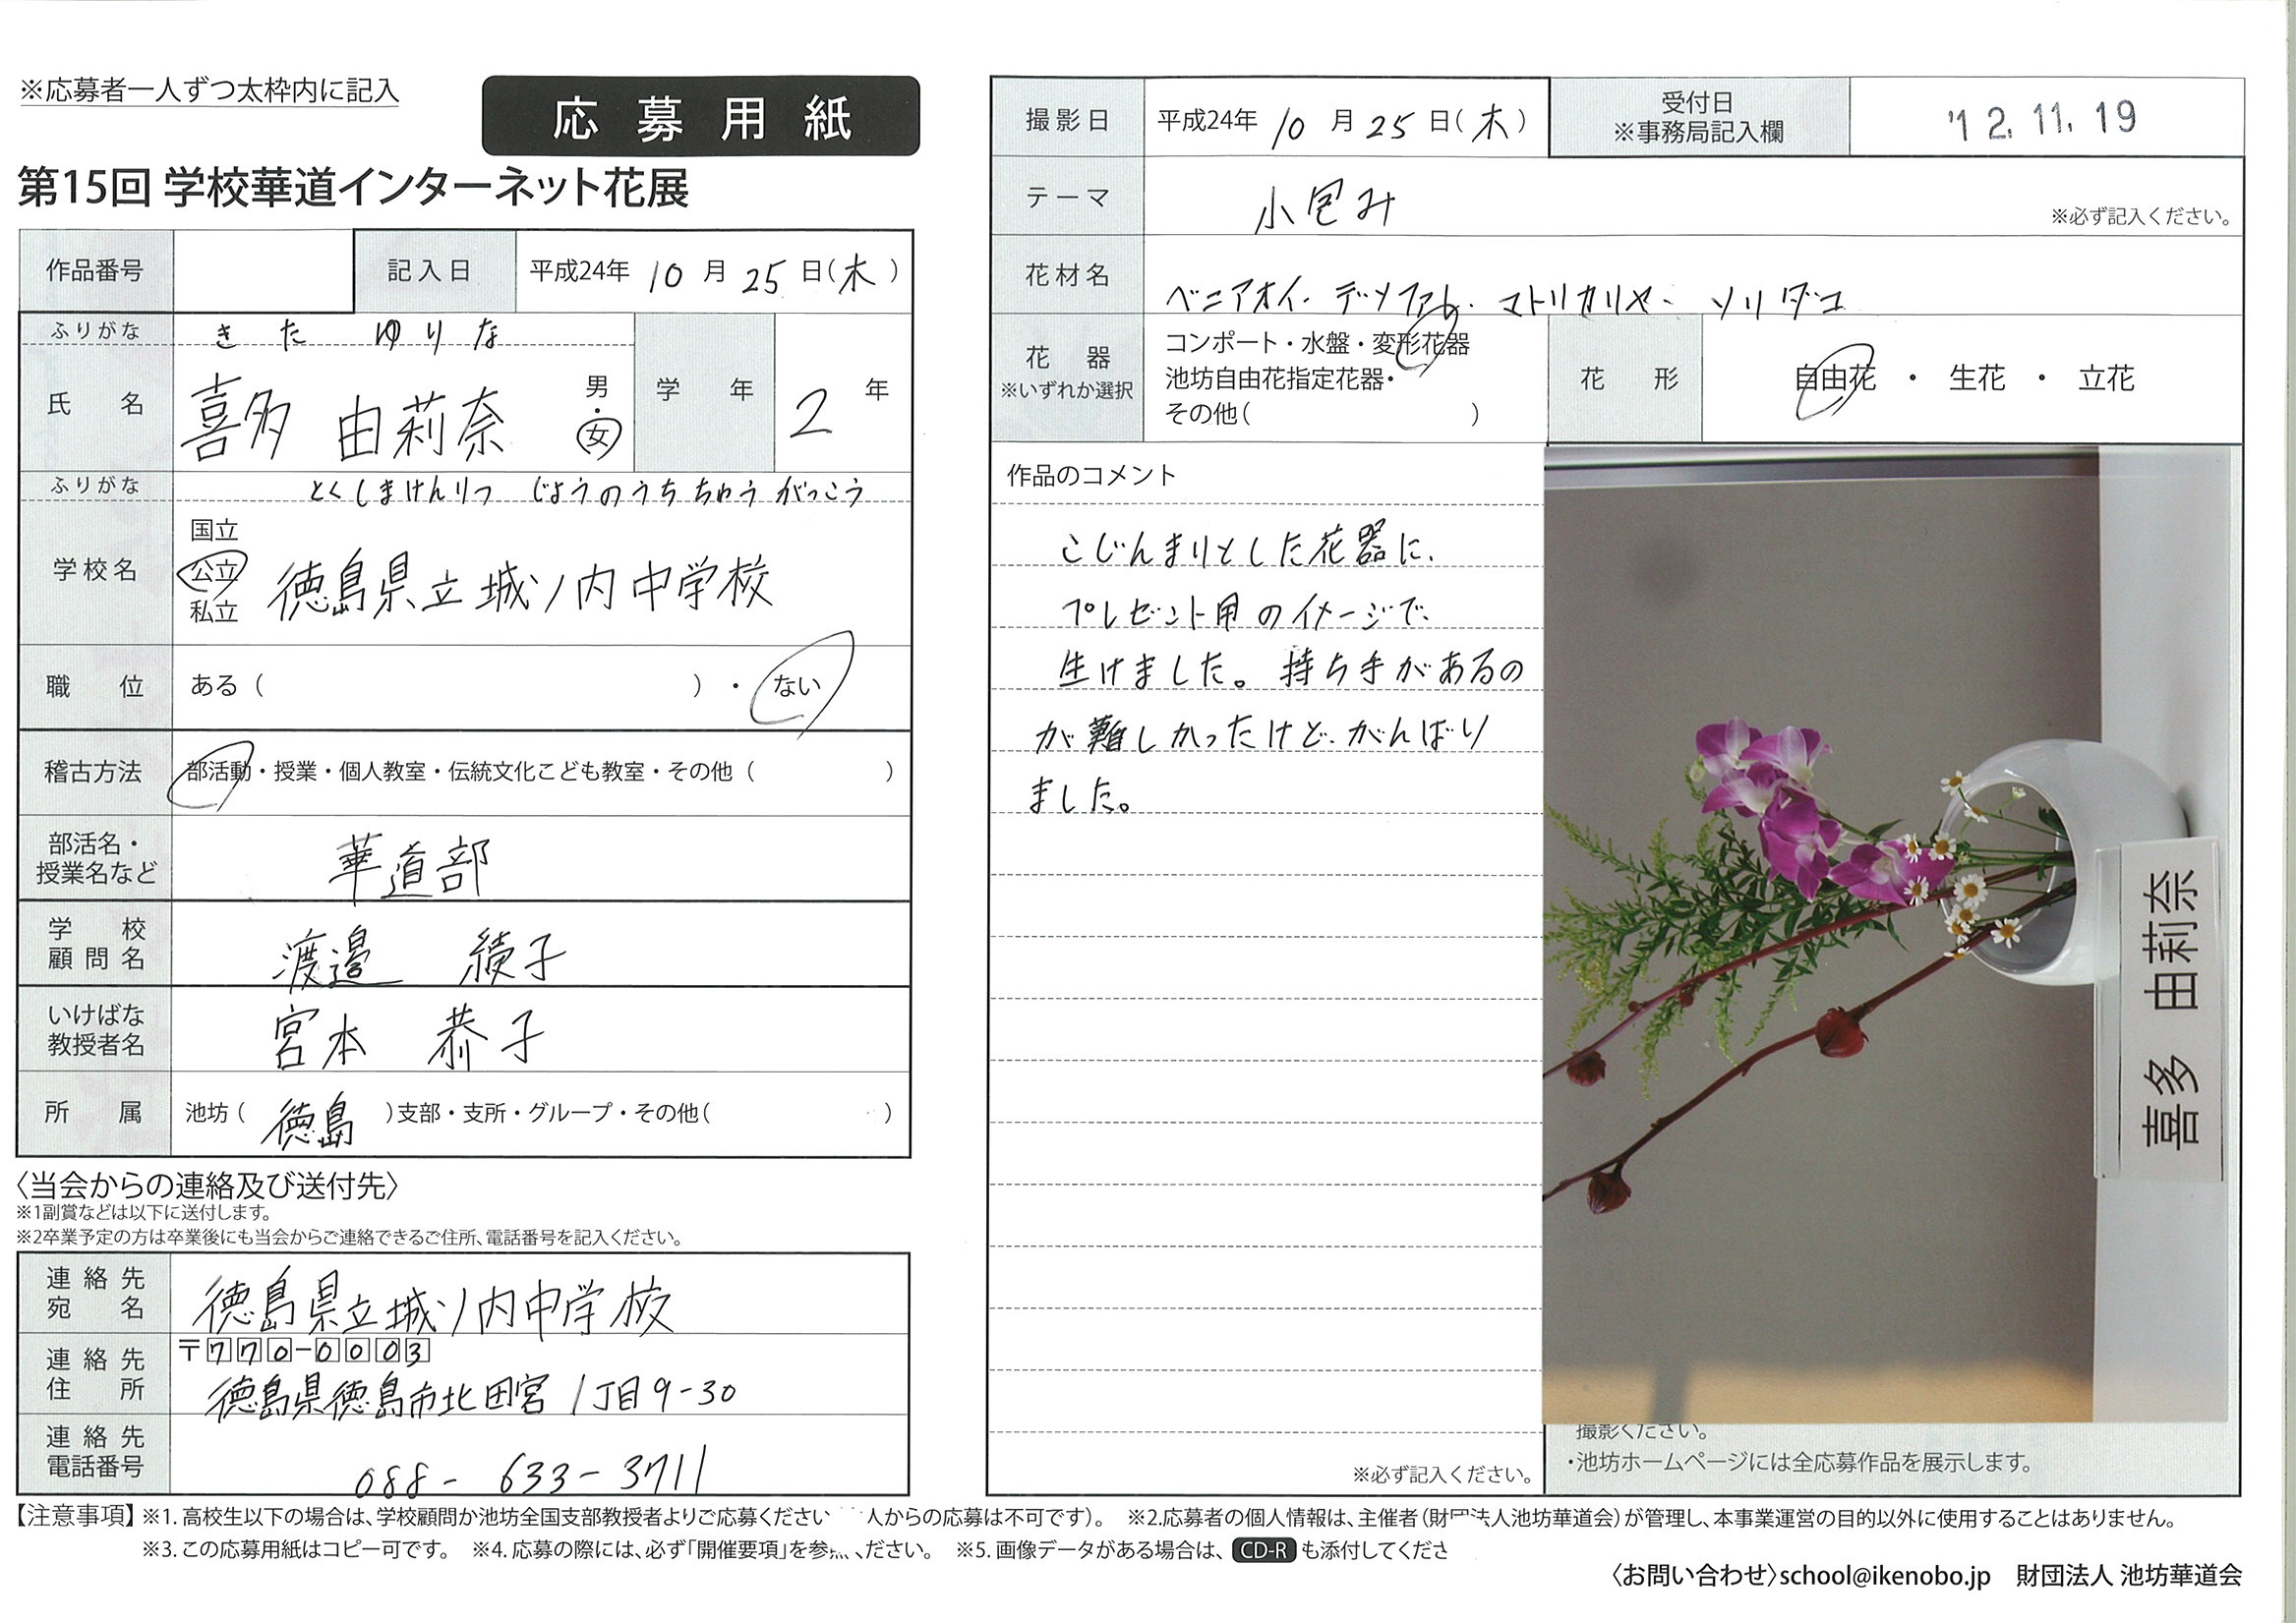 ※応募者一人ずつ太枠内に記入
応募用紙
第15回 学校華道インターネット花展
作品番号
記入日 平成24年 10月 25日(木)
ふりがな きた ゆりな
氏名 喜多 由莉奈 男・女
学年 2年
ふりがな とくしまけんりつ じょうのうちちゅうがっこう
学校名 国立 公立 私立 徳島県立城ノ内中学校
職位 ある( )・ない
稽古方法 部活動・授業・個人教室・伝統文化こども教室・その他( )
部活名・授業名など 華道部
学校顧問名 渡邉 績子
いけばな教授者名 宮本 恭子
所属 池坊(徳島)支部・支所・グループ・その他( )
〈当会からの連絡及び送付先〉
※1副賞などは以下に送付します。
※2卒業予定の方は卒業後にも当会からご連絡できるご住所、電話番号を記入ください。
連絡先宛名 徳島県立城ノ内中学校
連絡先住所 〒770-0003
徳島県徳島市北田宮1丁目9-30
連絡先電話番号 088-633-3711
撮影日 平成24年 10月 25日(木)
受付日 ※事務局記入欄 '12.11.19
テーマ 小包み
※必ず記入ください。
花材名 ベニアオイ、デンファレ、マトリカリヤ、ソリダコ
花器 ※いずれか選択
コンポート・水盤・変形花器
池坊自由花指定花器・
その他( )
花形 自由花・生花・立花
作品のコメント
こじんまりとした花器に、
プレゼント用のイメージで、
生けました。持ち手があるの
が難しかったけど、がんばり
ました。
※必ず記入ください。
喜多 由莉奈
撮影ください。
・池坊ホームページには全応募作品を展示します。
【注意事項】※1.高校生以下の場合は、学校顧問か池坊全国支部教授者よりご応募ください 人からの応募は不可です)。 ※2.応募者の個人情報は、主催者(財団法人池坊華道会)が管理し、本事業運営の目的以外に使用することはありません。
※3.この応募用紙はコピー可です。 ※4.応募の際には、必ず「開催要項」を参 ください。 ※5.画像データがある場合は、CD-Rも添付してくださ
〈お問い合わせ〉school@ikenobo.jp 財団法人 池坊華道会